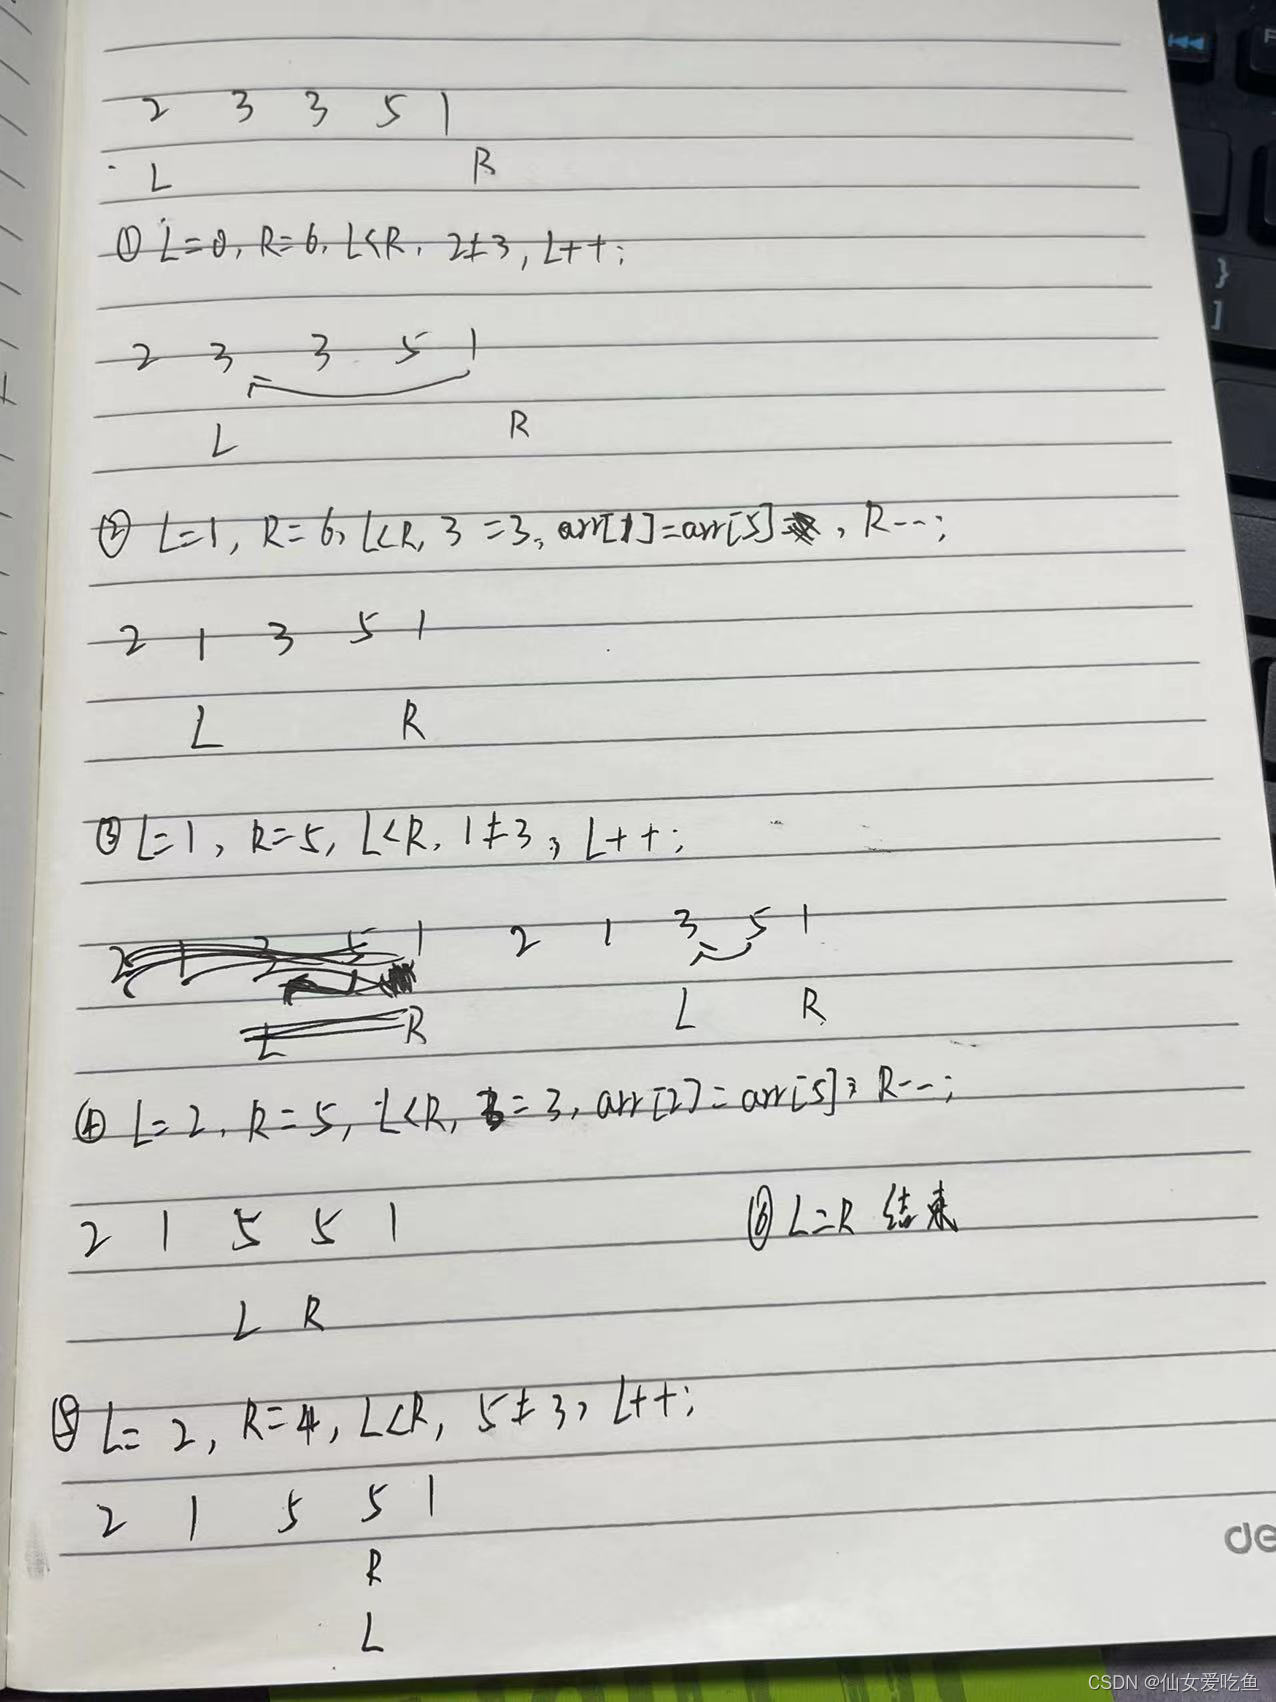 2 3 3 5 1
L R
① L=0, R=6, L<R, 2≠3, L++;
2 3 3 5 1
L R
② L=1, R=6, L<R, 3=3, arr[1]=arr[5], R--;
2 1 3 5 1
L R
③ L=1, R=5, L<R, 1≠3, L++;
1 2 1 3 5 1
R L R
④ L=2, R=5, L<R, 3=3, arr[2]=arr[5], R--;
2 1 5 5 1
⑥ L=R 结束
L R
⑤ L=2, R=4, L<R, 5≠3, L++;
2 1 5 5 1
R
L
de
}
]
CSDN @仙女爱吃鱼